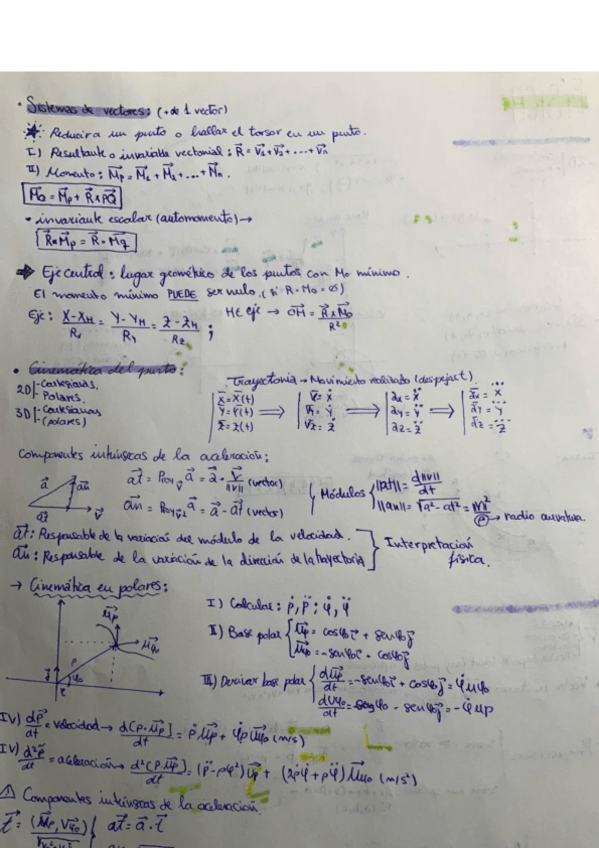 • Sistemas de vectores: (+ de 1 vector)
Reducir a un punto o hallar el torsor en un punto.
I) Resultante o invariable vectorial: R⃗ = V⃗₁ + V⃗₂ + ... + V⃗ₙ
II) Momento: M⃗p = M⃗₁ + M⃗₂ + ... + M⃗ₙ.
M⃗Q = M⃗p + R⃗ ∧ PQ⃗
• invariante escalar (automomento) →
R⃗ • M⃗p = R⃗ • M⃗q
⇒ Eje central: lugar geométrico de los puntos con Mo mínimo.
El momento mínimo PUEDE ser nulo. (si R • Mo = ø)
Eje: (X - X_H)/Rx = (Y - Y_H)/Ry = (Z - Z_H)/Rz ; H ∈ eje → OH⃗ = (R⃗ ∧ M⃗o)/R²
• Cinemática del punto:
2D |- Cartesianas.
Polares.
3D |- Cartesianas
(polares)
Trayectoria → Movimiento realizado (despejar t)
Componentes intrínsecas de la aceleración:
a⃗t = Proy a⃗ = a⃗ • V⃗/||V|| (vector)
a⃗n = Proy a⃗ = a⃗ - a⃗t (vector)
Módulos
||at|| = d||v||/dt
||an|| = √(a² - at²) = |v|²/ρ → radio curvatura.
a⃗t: Responsable de la variación del módulo de la velocidad.
a⃗n: Responsable de la variación de la dirección de la trayectoria
Interpretación física.
→ Cinemática en polares:
I) Calcular: ρ̇, ρ̈ ; φ̇, φ̈
II) Base polar { u⃗ρ = cosφ i⃗ + senφ j⃗
u⃗φ = -senφ i⃗ - cosφ j⃗
III) Derivar base polar { du⃗ρ/dt = -senφ i⃗ + cosφ j⃗ = φ̇ uφ
duφ/dt = - senφ j⃗ = -φ̇ uρ
IV) dρ⃗/dt = velocidad → d[ρ • u⃗ρ]/dt = ρ̇ u⃗ρ + φ̇ρ u⃗φ (m/s)
IV) d²ρ⃗/dt² = aceleración → d²(ρ • u⃗ρ)/dt = (ρ̈ - ρφ̇²) u⃗ρ + (2ρ̇φ̇ + ρφ̈) u⃗φ (m/s²)
⚠ Componentes intrínsecas de la aceleración.
a⃗t = a⃗ • t⃗